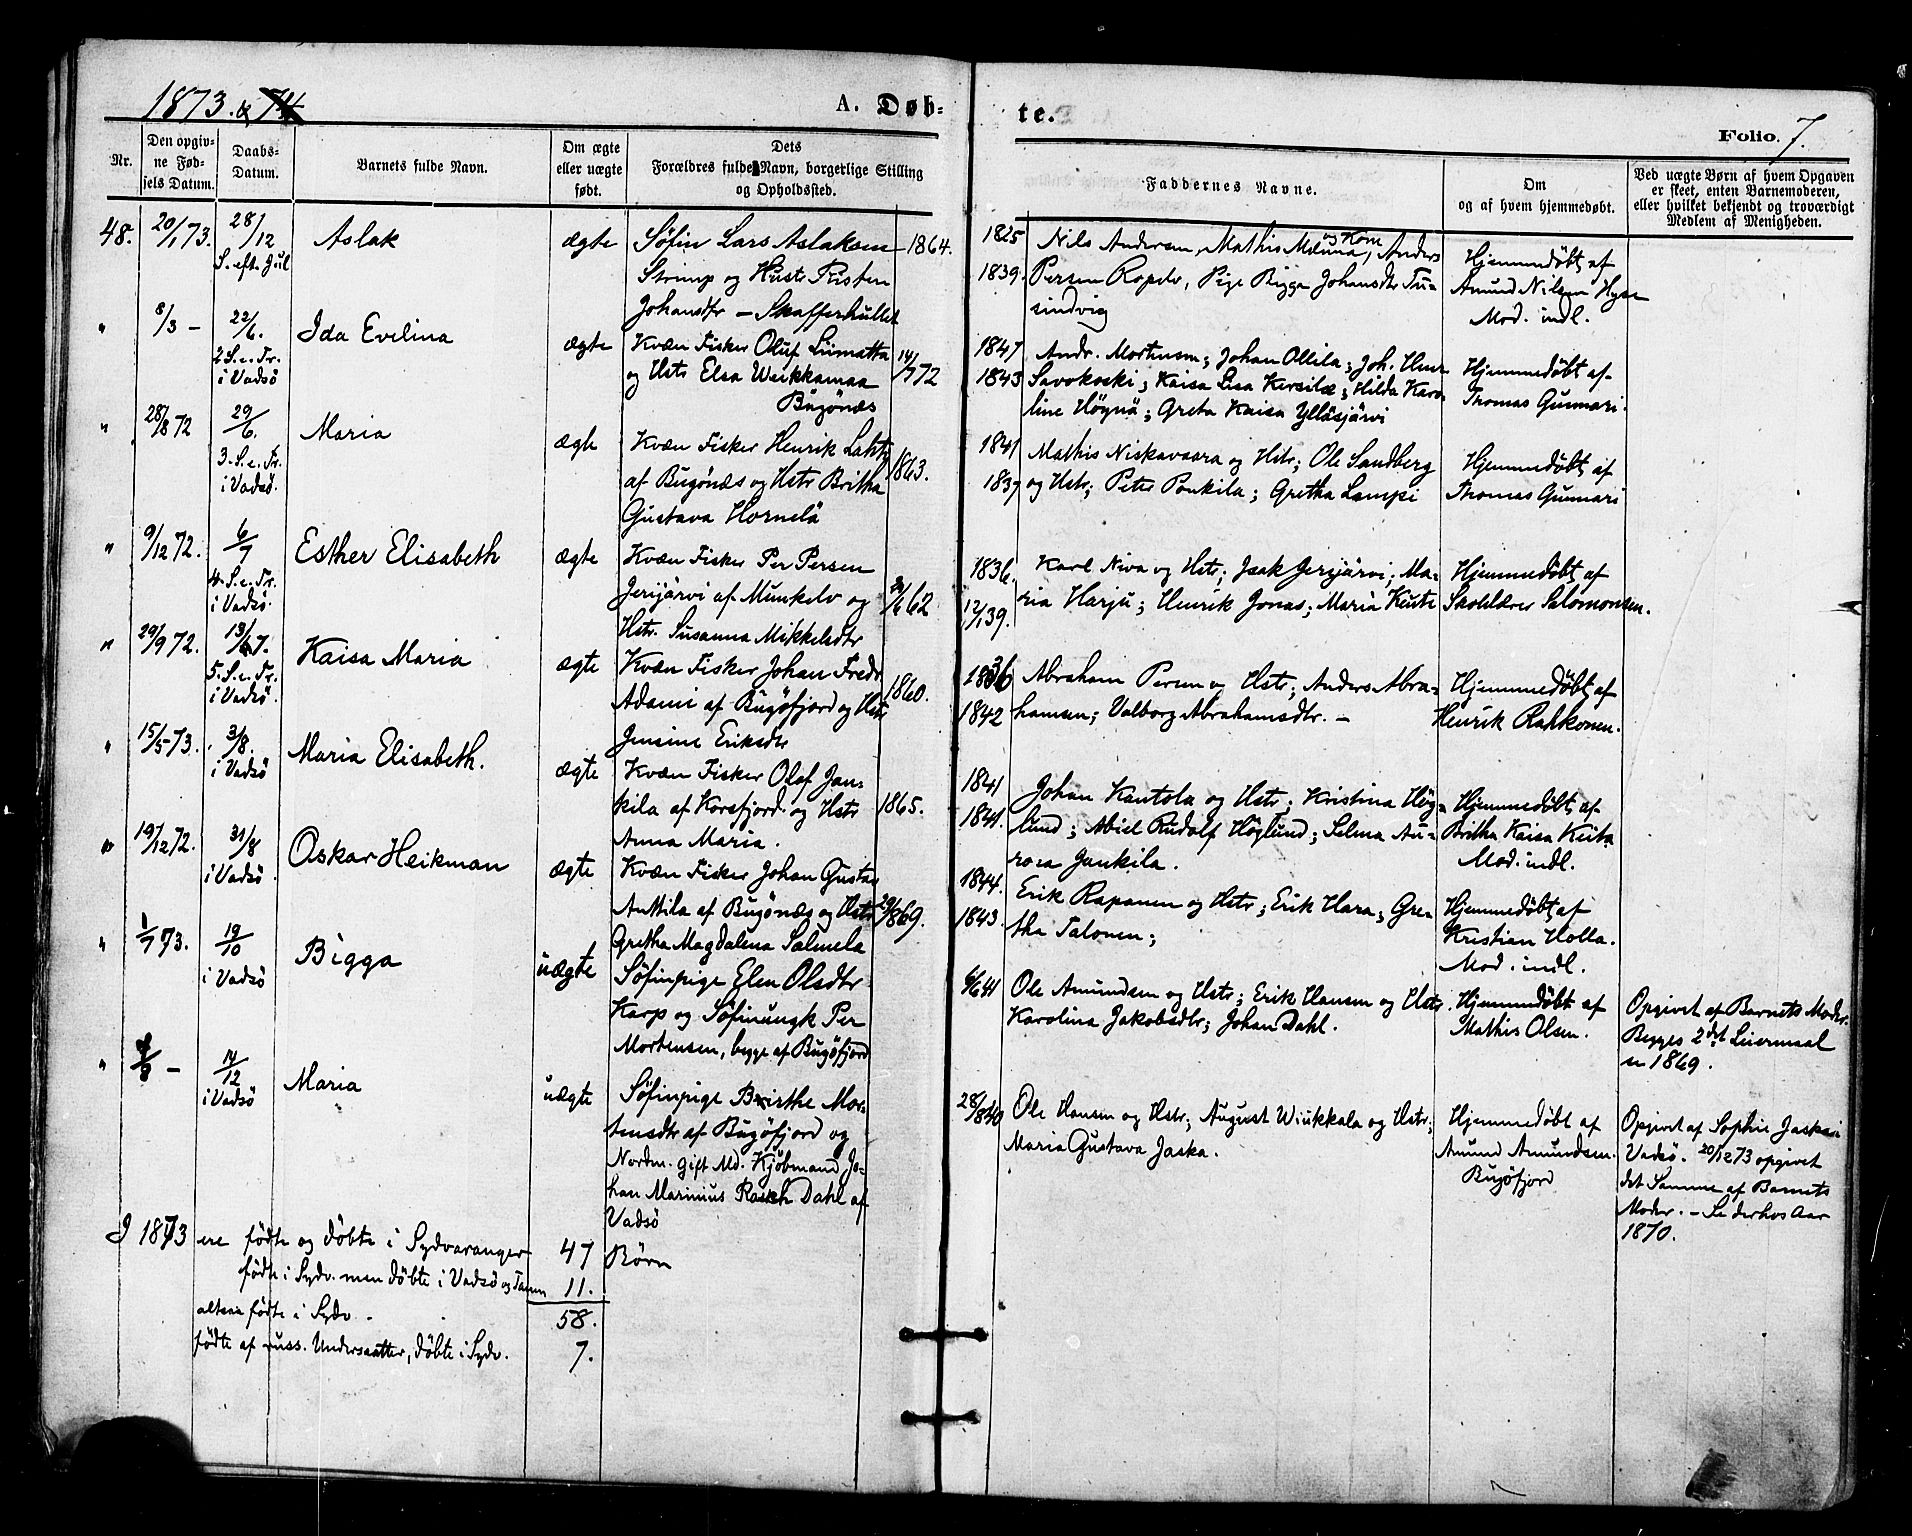 1873. & 74
A. Døb-
te.
Folio. 7.
Nr.
Den opgiv-
ne Fød-
sels Datum.
Daabs-
Datum.
Barnets fulde Navn.
Om ægte
eller uægte
født.
Dets
Forældres fulde Navn, borgerlige Stilling
og Opholdssted.
Faddernes Navne.
Om
og af hvem hjemmedøbt.
Ved uægte Børn af hvem Opgaven
er skeet, enten Barnemoderen,
eller hvilket bekjendt og troværdigt
Medlem af Menigheden.
48. 20/1 73. 28/12
S. eft. Jul
Aslak
ægte
Søfin Lars Aslaksen
Strump og Hustr Kristen
Johansdtr — Skafferhullet
1864.
1825
1839.
Nils Andersen, Mathis Menna og Kone, Anders
Persen Ropelv, Pige Bigga Johansdtr Tu-
sindvig
Hjemmedøbt af
Amund Nilsen
Mod. indl.
" 8/3 — 22/6.
2 S. e. Tr.
i Vadsö
Ida Evelina
ægte
Kvæn Fisker Oluf Liimatta
og Hstr Elsa Weikkamaa
Bugönæs
14/7 72
1847
1843
Andr. Mortensen; Johan Ollila; Joh. Henr
Savokoski; Kaisa Lisa Kersilæ; Hilda Karo-
line Högnä; Greta Kaisa Ylläsjärvi
Hjemmedøbt af
Thomas Gunnari.
" 28/8 72 29/6.
3. S. e. Tr.
i Vadsö.
Maria
ægte
Kvæn Fisker Henrik Lahti
af Bugönæs og Hstr Britha
Gustava Hornelä
1863.
1841
1837
Mathis Niskavaara og Hstr; Ole Sandberg
og Hstr; Peter Poukila; Gretha Lampi
Hjemmedøbt af
Thomas Gunnari
" 9/12 72. 6/7
4. S. e. Tr.
i Vadsö.
Esther Elisabeth
ægte
Kvæn Fisker Per Persen
Jerijärvi af Munkelv og
Hstr. Susanna Mikkelsdtr
/6 62
1836.
12/1 39.
Karl Niva og Hstr; Isak Jerijärvi; Ma-
ria Harju; Henrik Jonas; Maria Keute
Hjemmedøbt af
Skolelærer Salomonsen.
" 29/9 72. 13/7.
5. S. e. Tr.
i Vadsö.
Kaisa Maria
ægte
Kvæn Fisker Johan Fredr
Adami af Bugöfjord og Hstr
Jensine Eriksdtr
1860.
1836
1842
Abraham Persen og Hstr; Anders Abra-
hamsen; Valborg Abrahamsdtr. —
Hjemmedøbt af
Henrik Rahkonen.
" 15/5 73. 3/8.
i Vadsö
Maria Elisabeth.
ægte
Kvæn Fisker Olof Jan-
kila af Korsfjord og Hstr
Anna Maria.
1865.
1841
1841.
Johan Kantola og Hstr; Kristina Hög-
lund; Abiel Rudolf Höglund; Selma Au-
rora Jankila.
Hjemmedøbt af
Britha Kaisa Keita
Mod. indl.
" 19/12 72. 31/8
i Vadsö
Oskar Heikman
ægte
Kvæn Fisker Johan Gustav
Anttila af Bugönæs og Hstr
Gretha Magdalena Salmela
/8 69.
1844.
1843.
Erik Rapanen og Hstr; Erik Hara; Gre-
tha Talonen;
Hjemmedøbt af
Kristian Holla.
Mod. indl.
" 1/7 73. 19/10
i Vadsö
Bigga
uægte
Söfinpige Elen Olsdtr
Karp og Söfinungk Per
Mortensen, begge af Bugöfjord
6/6 41
Ole Amundsen og Hstr; Erik Hansen og Hstr.
Karolina Jakobsdtr; Johan Dahl.
Hjemmedøbt af
Mathis Olsen.
Opgivet af Barnets Moder.
Begges 2det Leiermaal
se 1869.
" — 14/12
i Vadsö
Maria
uægte
Söfinpige Birthe Mor-
tensdtr af Bugöfjord og
Nordm. gift Md. Kjöbmand Jo-
han Marinius Rasch Dahl af
Vadsö
28/8 40
Ole Hansen og Hstr; August Wiukkala og Hstr;
Maria Gustava Jaska.
Hjemmedøbt af
Amund Amundsen.
Bugöfjord
Opgivet af Sophie Jaska i
Vadsö. 20/12 73 opgivet
det Samme af Barnets
Moder. — Se derhos Aar
1870.
I 1873 ere födte og döbte i Sydvaranger 47 Börn
födte i Sydv. men döbte i Vadsö og Tanen 11.
altsaa födte i Sydv. 58.
födte af russ. Undersaatter, döbte i Sydv. 7.